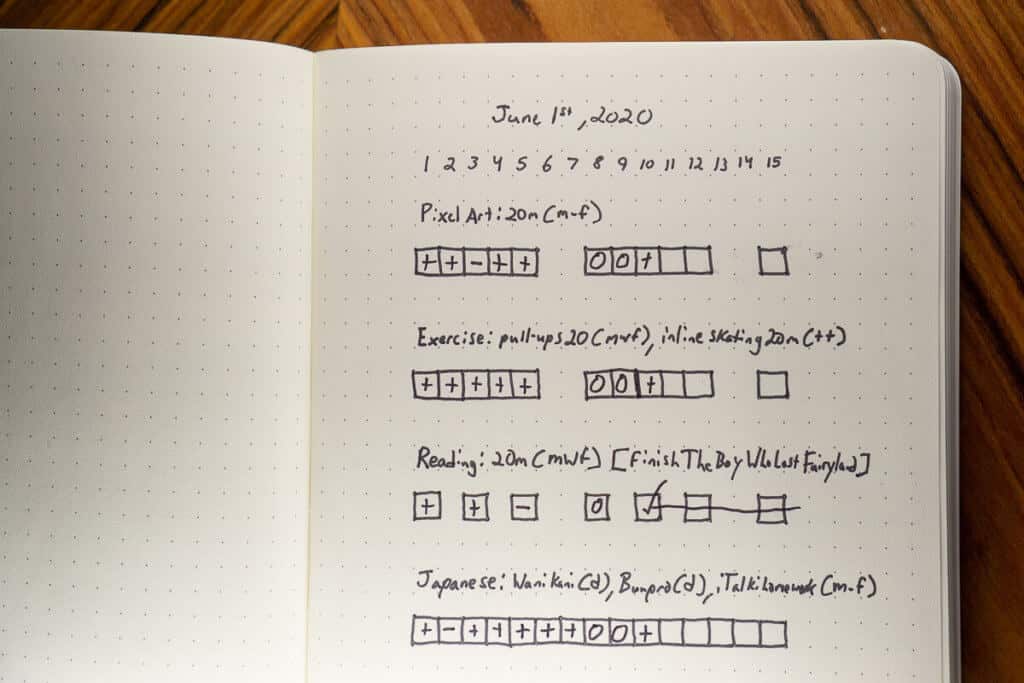 June 1st, 2020
1 2 3 4 5 6 7 8 9 10 11 12 13 14 15
Pixel Art: 20m (m-f)
+ + - + + 0 0 +
Exercise: pull-ups 20 (mwf), inline skating 20m (tt)
+ + + + + 0 0 +
Reading: 20m (mwf) [Finish The Boy Who Lost Fairyland]
+ + - 0 ✓
Japanese: WaniKani (d), Bunpro (d), iTalki homework (m-f)
+ - + + + + + 0 0 +